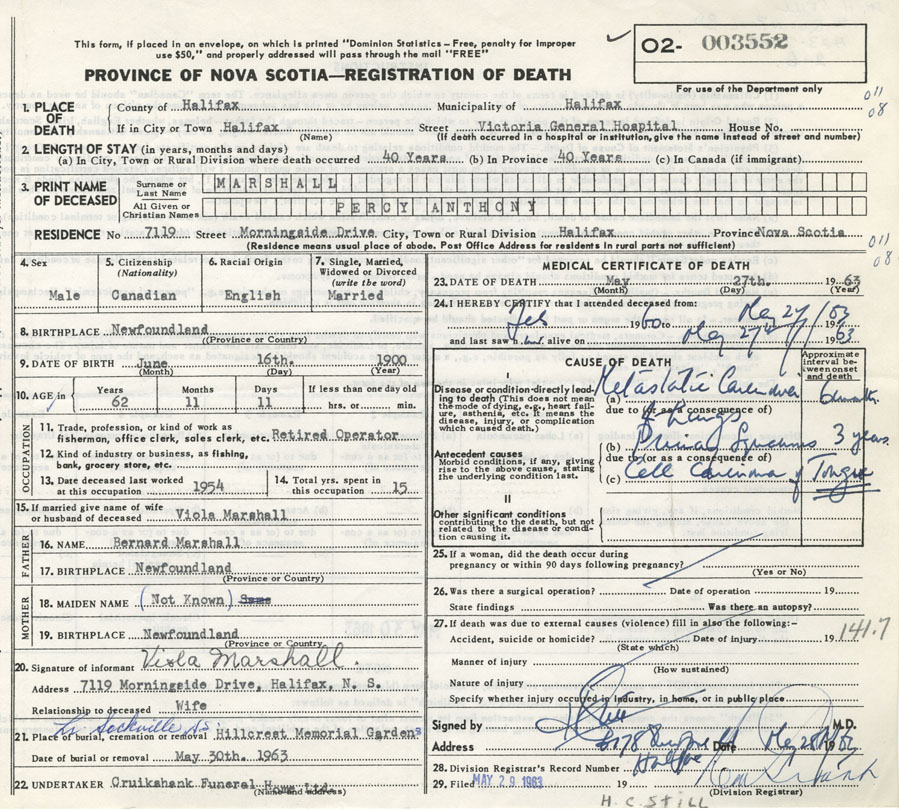 This form, if placed in an envelope, on which is printed "Dominion Statistics – Free, penalty for improper
use $50," and properly addressed will pass through the mail "FREE"
PROVINCE OF NOVA SCOTIA—REGISTRATION OF DEATH
02- 003552
For use of the Department only
011
08
1. PLACE OF DEATH County of Halifax Municipality of Halifax
If in City or Town Halifax Street Victoria General Hospital House No.
(Name) (If death occurred in a hospital or institution, give the name instead of street and number)
2. LENGTH OF STAY (in years, months and days)
(a) In City, Town or Rural Division where death occurred 40 Years (b) In Province 40 Years (c) In Canada (if immigrant)
3. PRINT NAME OF DECEASED Surname or Last Name MARSHALL
All Given or Christian Names PERCY ANTHONY
RESIDENCE No 7119 Street Morningside Drive City, Town or Rural Division Halifax Province Nova Scotia
(Residence means usual place of abode. Post Office Address for residents in rural parts not sufficient)
011
08
4. Sex Male
5. Citizenship (Nationality) Canadian
6. Racial Origin English
7. Single, Married, Widowed or Divorced (write the word) Married
8. BIRTHPLACE Newfoundland
(Province or Country)
9. DATE OF BIRTH June 16th. 1900
(Month) (Day) (Year)
10. AGE in Years 62 Months 11 Days 11 If less than one day old hrs. or min.
OCCUPATION
11. Trade, profession, or kind of work as
fisherman, office clerk, sales clerk, etc. Retired Operator
12. Kind of industry or business, as fishing,
bank, grocery store, etc.
13. Date deceased last worked at this occupation 1954
14. Total yrs. spent in this occupation 15
15. If married give name of wife or husband of deceased Viola Marshall
FATHER
16. NAME Bernard Marshall
17. BIRTHPLACE Newfoundland
(Province or Country)
MOTHER
18. MAIDEN NAME (Not Known) Same
19. BIRTHPLACE Newfoundland
(Province or Country)
20. Signature of informant Viola Marshall.
Address 7119 Morningside Drive, Halifax, N. S.
Relationship to deceased Wife
Sackville NS
21. Place of burial, cremation or removal Hillcrest Memorial Gardens
Date of burial or removal May 30th. 1963
22. UNDERTAKER Cruikshank Funeral Home Ltd.
(Name and address)
MEDICAL CERTIFICATE OF DEATH
23. DATE OF DEATH May 27th. 1963
(Month) (Day) (Year)
24. I HEREBY CERTIFY that I attended deceased from:
Feb 1960 to May 27/63
and last saw him alive on May 27th 1963
CAUSE OF DEATH
Approximate interval between onset and death
I
Disease or condition directly leading to death (This does not mean the mode of dying, e.g., heart failure, asthenia, etc. It means the disease, injury, or complication which caused death.)
(a) Metastatic Carcinoma 6 months
due to (or as a consequence of)
of Lungs
Antecedent causes
Morbid conditions, if any, giving rise to the above cause, stating the underlying condition last.
(b) Primary Squamous 3 years
due to (or as a consequence of)
(c) Cell Carcinoma of Tongue
II
Other significant conditions
contributing to the death, but not related to the disease or condition causing it.
25. If a woman, did the death occur during
pregnancy or within 90 days following pregnancy?
(Yes or No)
26. Was there a surgical operation? Date of operation 19
State findings Was there an autopsy?
27. If death was due to external causes (violence) fill in also the following:-
Accident, suicide or homicide? Date of injury 19 141.7
(State which)
Manner of injury
(How sustained)
Nature of injury
Specify whether injury occurred in industry, in home, or in public place
Signed by M.D.
Address Halifax Date May 28 19
28. Division Registrar's Record Number
29. Filed MAY 29 1963 19
(Division Registrar)
H. C. STILL